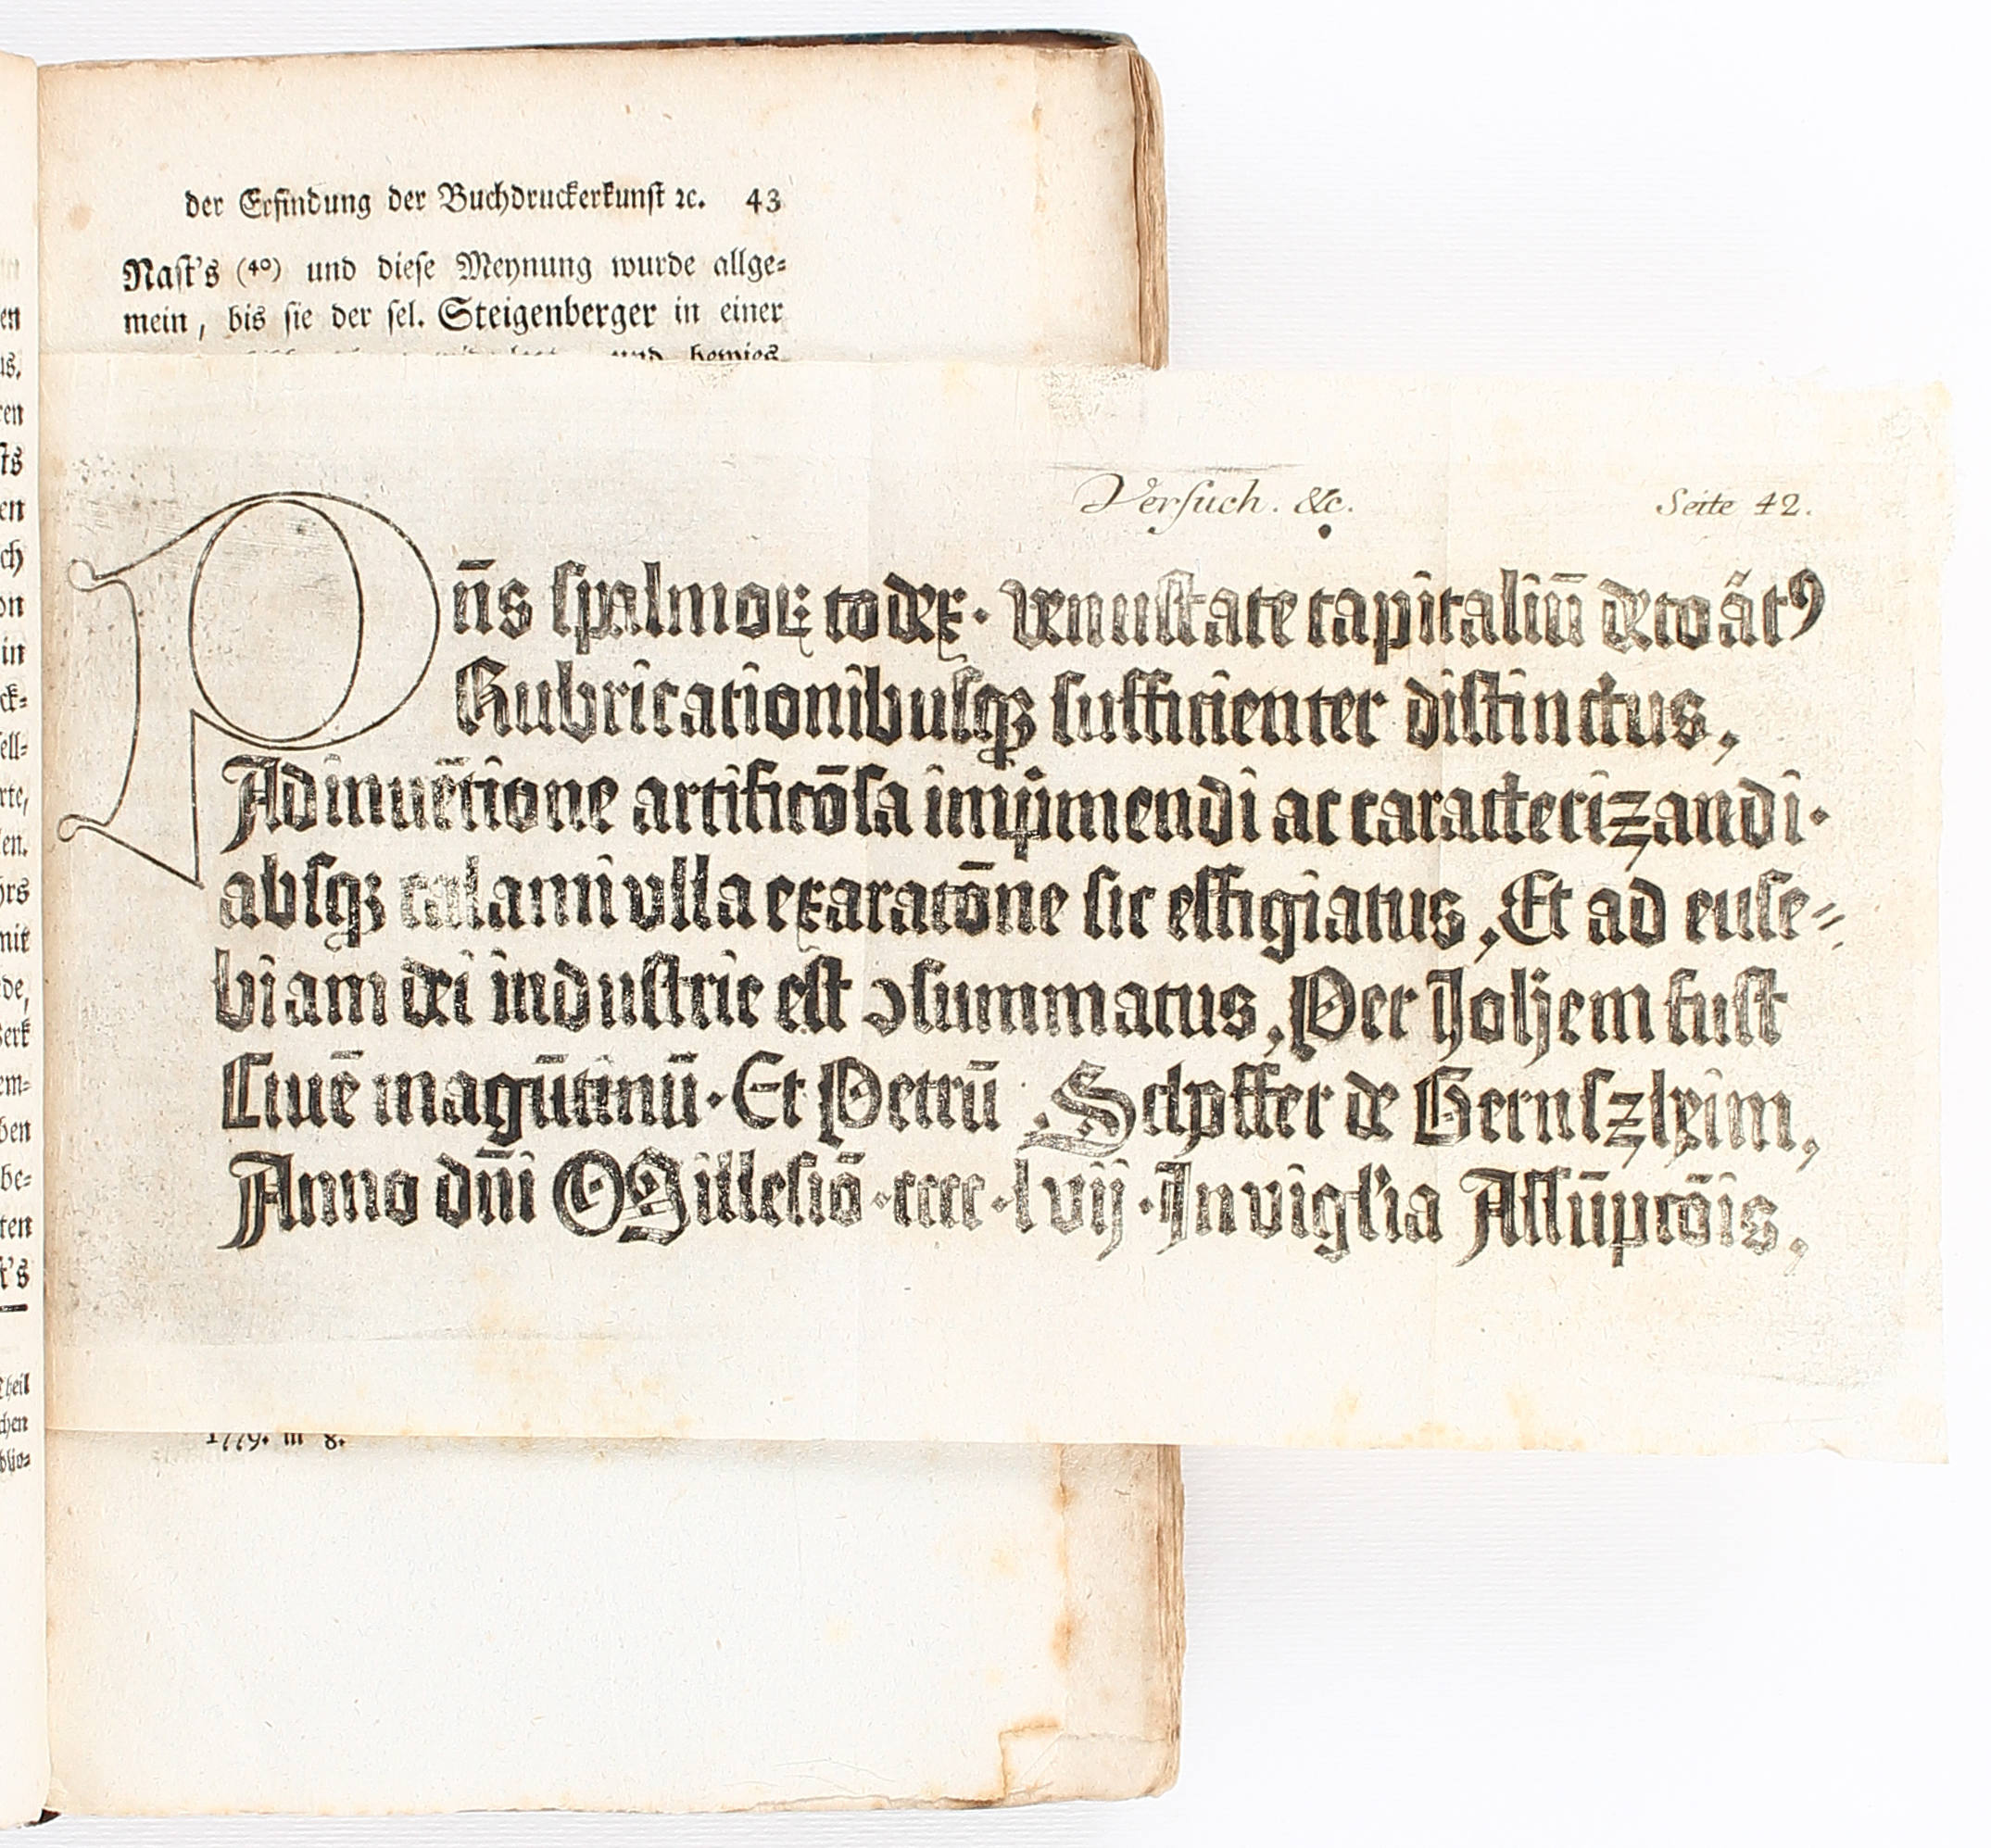 der Erfindung der Buchdruckerkunst ꝛc. 43
Nast's (40) und diese Meynung wurde allge⸗
mein, bis sie der sel. Steigenberger in einer
und bewies
Versuch. &c. Seite 42.
Pn̄s spalmoꝝ codex. venustate capitaliū decoãtꝯ
Rubricationibusqꝫ sufficienter distinctus,
Adinuētione artificōsa impͥmendi ac caracterizandi.
absqꝫ calami vlla exaracōne sic effigiatus, Et ad euse⸗
biam dei industrie est ɔsummatus, Per Johem fust
Ciuē magūtinū. Et Petrū Schꝑffer de Gernszheim,
Anno dn̄i Millesiō .cccc. lvij. In vigl'ia Assūpcōis,
1779. in 8.
en
us.
ren
sts
en
ch
on
in
ck⸗
ell⸗
rte,
en.
hrs
mit
de,
erk
em⸗
ben
be⸗
ten
t's
Theil
chen
blio⸗